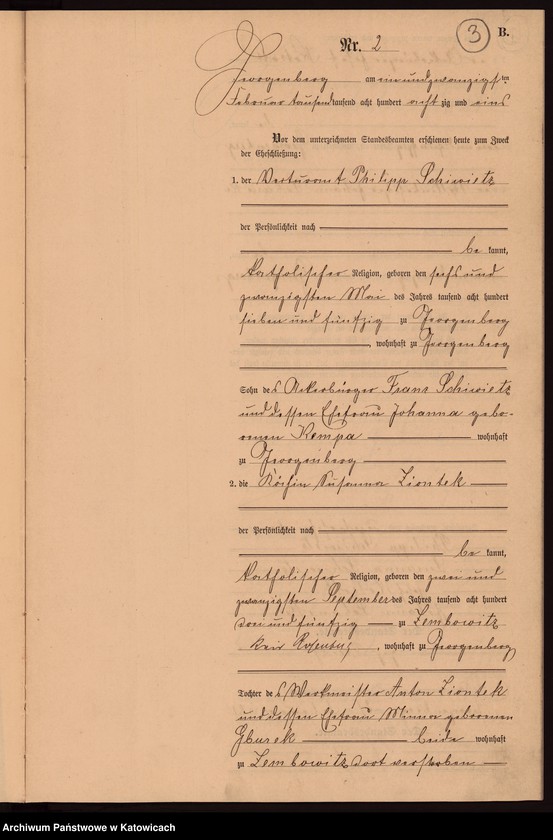 3
B.
Nr. 2
Georgenberg am ein und zwanzigsten
Februar tausend tausend acht hundert acht zig und eins
Vor dem unterzeichneten Standesbeamten erschienen heute zum Zweck
der Eheschließung:
1. der Philipp Schiwietz
der Persönlichkeit nach
be kannt,
katholischer Religion, geboren den sechs und
zwanzigsten Mai des Jahres tausend acht hundert
sieben und fünfzig zu Georgenberg
, wohnhaft zu Georgenberg
Sohn des Ackerbürger Franz Schiwietz
und dessen Ehefrau Johanna gebo-
renen Kempa wohnhaft
zu Georgenberg
2. die Köchin Susanna Ziontek
der Persönlichkeit nach
be kannt,
katholischer Religion, geboren den zwei und
zwanzigsten September des Jahres tausend acht hundert
drei und fünfzig zu Zembowitz
Kreis Rosenberg, wohnhaft zu Georgenberg
Tochter des Werkmeister Anton Ziontek
und dessen Ehefrau Minna geborenen
Gburek beide wohnhaft
zu Zembowitz dort verstorben
Archiwum Państwowe w Katowicach